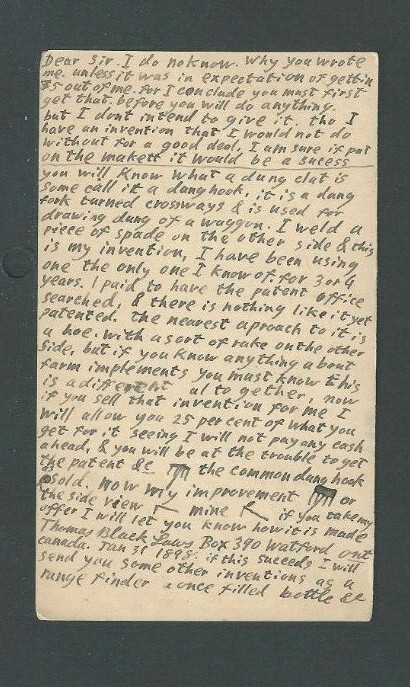 Dear Sir. I do no know. Why you wrote
me. unless it was in expectation of gettin
$5 out of me. For I conclude you must first
get that. before you will do anything.
but I dont intend to give it. tho I
have an invention that I would not do
without for a good deal, I am sure if put
on the makett it would be a sucess
you will Know what a dung clat is
some call it a dunghook, it is a dung
fork turned crossways & is used for
drawing dung of a waggon. I weld a
piece of spade on the other side & this
is my invention, I have been using
one the only one I know of. for 3 or 4
years. I paid to have the patent office
searched, & there is nothing like it yet
patented. the nearest aproach to it is
a hoe. with a sort of rake on the other
side, but if you know anything about
farm implements you must know this
is a different al to gether, now
if you sell that invention for me I
will allow you 25 per cent of what you
get for it seeing I will not pay any cash
ahead, & you will be at the trouble to get
the patent &c the common dung hook
as sold, now my improvement or
the side view mine if you take my
offer I will let you know how it is made
Thomas Black Laws Box 390 Watford ont
canada. Jan 31 1898. if this suceeds I will
send you some other inventions as a
range finder & once filled bottle &c